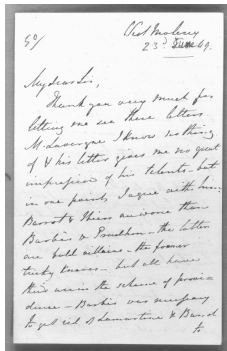 50/
West Molesey
23d June 49.
My dear Sir,
Thank you very much for
letting me see these letters.
M. Lavergne I know nothing
of & his letter gives me no great
impression of his talents - but
in one point I agree with him.
Barrot & Thiers are worse than
Barbès & Proudhon - the latter
are bold villains - the former
tricky knaves - but all have
their uses in the scheme of provi-
dence - Barbès was necessary
to get rid of Lamartine & Barrot
to